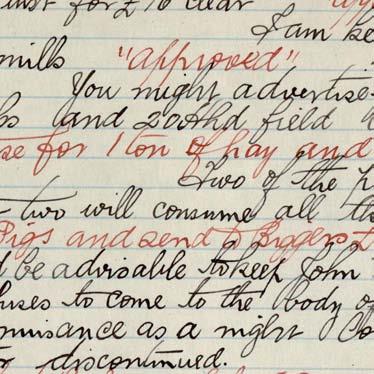 just for £70 clear
I am ke
mills "approved"
You might advertise
and 20 Ahd field
se for 1 ton of hay and
Two of the p
two will consume all the
Pigs and send to Biggers
d be advisable to keep John
uses to come to the body of
nuisance as a night Co
or discontinued.